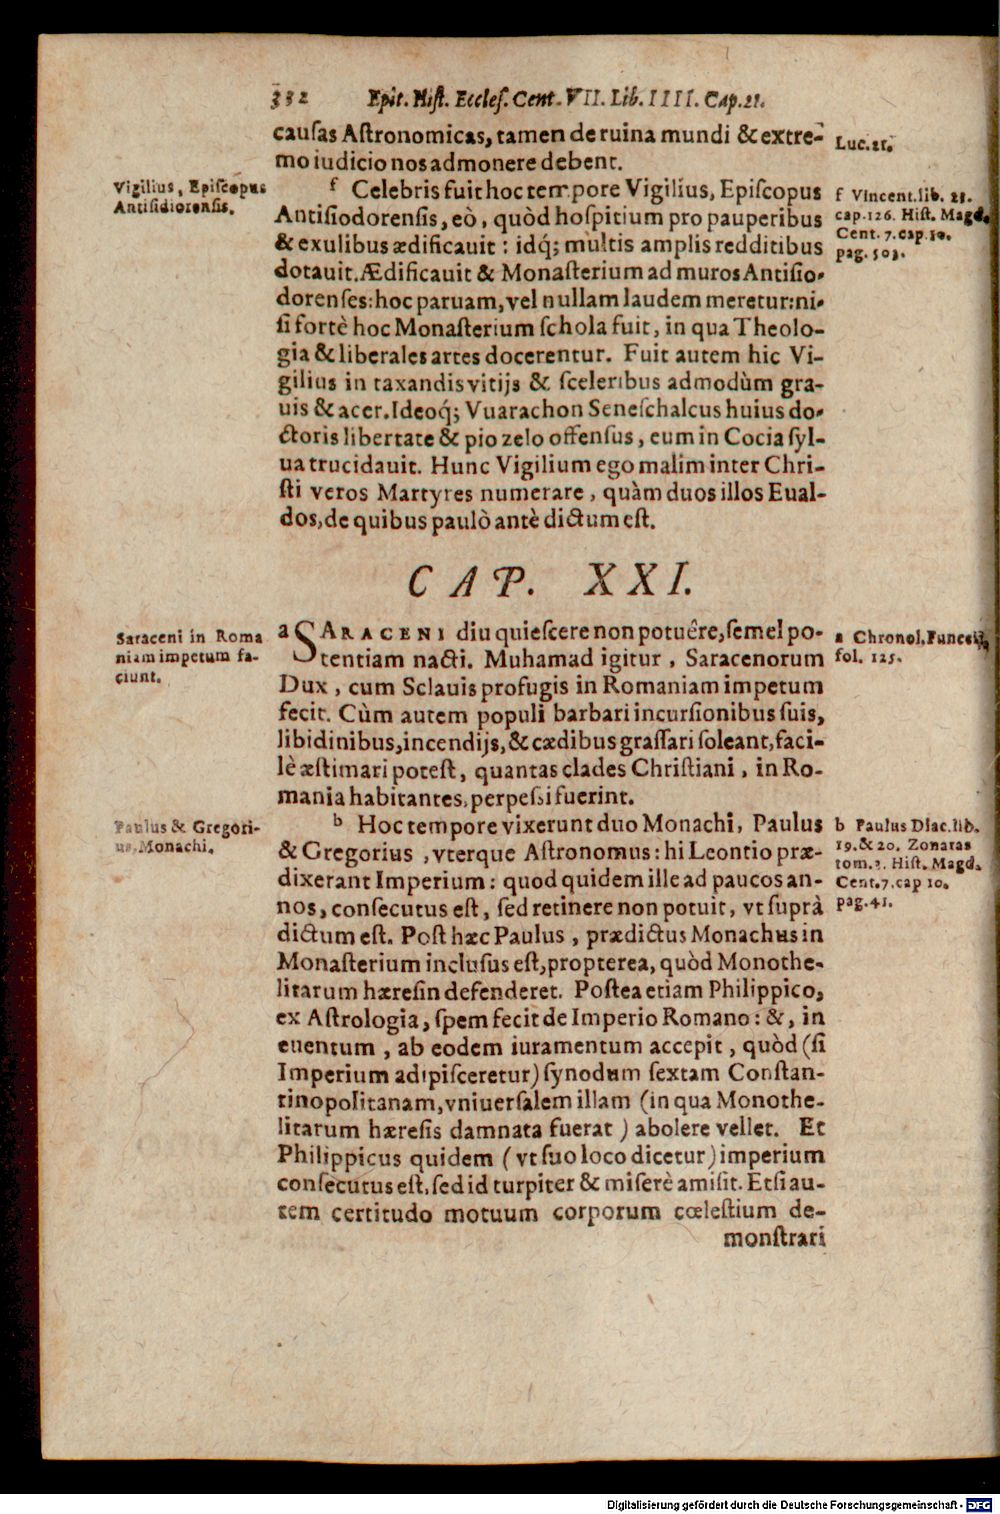 332 Epit. Hiſt. Eccleſ. Cent. VII. Lib. IIII. Cap. 21.
cauſas Aſtronomicas, tamen de ruina mundi & extre-
mo iudicio nos admonere debent.
Luc. 21.
Vigilius, Epiſcopus
Antiſidiorenſis.
f Celebris fuit hoc tempore Vigilius, Epiſcopus
Antiſiodorenſis, eò, quòd hoſpitium pro pauperibus
& exulibus ædificauit: idq́; multis amplis redditibus
dotauit. Ædificauit & Monaſterium ad muros Antiſio-
dorenſes: hoc paruam, vel nullam laudem meretur: ni-
ſi fortè hoc Monaſterium ſchola fuit, in qua Theolo-
gia & liberales artes docerentur. Fuit autem hic Vi-
gilius in taxandis vitijs & ſceleribus admodùm gra-
uis & acer. Ideoq́; Vuarachon Seneſchalcus huius do-
ctoris libertate & pio zelo offenſus, eum in Cocia ſyl-
ua trucidauit. Hunc Vigilium ego malim inter Chri-
ſti veros Martyres numerare, quàm duos illos Eual-
dos, de quibus paulò antè dictum eſt.
f Vincent. lib. 21.
cap. 126. Hiſt. Magd.
Cent. 7. cap. 10.
pag. 503.
CAP. XXI.
Saraceni in Roma
niam impetum fa-
ciunt.
a SARACENI diu quieſcere non potuêre, ſemel po-
tentiam nacti. Muhamad igitur, Saracenorum
Dux, cum Sclauis profugis in Romaniam impetum
fecit. Cùm autem populi barbari incurſionibus ſuis,
libidinibus, incendijs, & cædibus graſſari ſoleant, faci-
lè æſtimari poteſt, quantas clades Chriſtiani, in Ro-
mania habitantes, perpeſsi fuerint.
a Chronol. Funccij,
fol. 125.
Paulus & Gregori-
us, Monachi.
b Hoc tempore vixerunt duo Monachi, Paulus
& Gregorius, vterque Aſtronomus: hi Leontio præ-
dixerant Imperium: quod quidem ille ad paucos an-
nos, conſecutus eſt, ſed retinere non potuit, vt ſuprà
dictum eſt. Poſt hæc Paulus, prædictus Monachus in
Monaſterium incluſus eſt, propterea, quòd Monothe-
litarum hæreſin defenderet. Poſtea etiam Philippico,
ex Aſtrologia, ſpem fecit de Imperio Romano: &, in
euentum, ab eodem iuramentum accepit, quòd (ſi
Imperium adipiſceretur) ſynodum ſextam Conſtan-
tinopolitanam, vniuerſalem illam (in qua Monothe-
litarum hæreſis damnata fuerat) abolere vellet. Et
Philippicus quidem (vt ſuo loco dicetur) imperium
conſecutus eſt, ſed id turpiter & miſerè amiſit. Etſi au-
tem certitudo motuum corporum cœleſtium de-
monſtrari
b Paulus Diac. lib.
19. & 20. Zonaras
tom. 3. Hiſt. Magd.
Cent. 7. cap 10.
pag. 41.
Digitalisierung gefördert durch die Deutsche Forschungsgemeinschaft - DFG